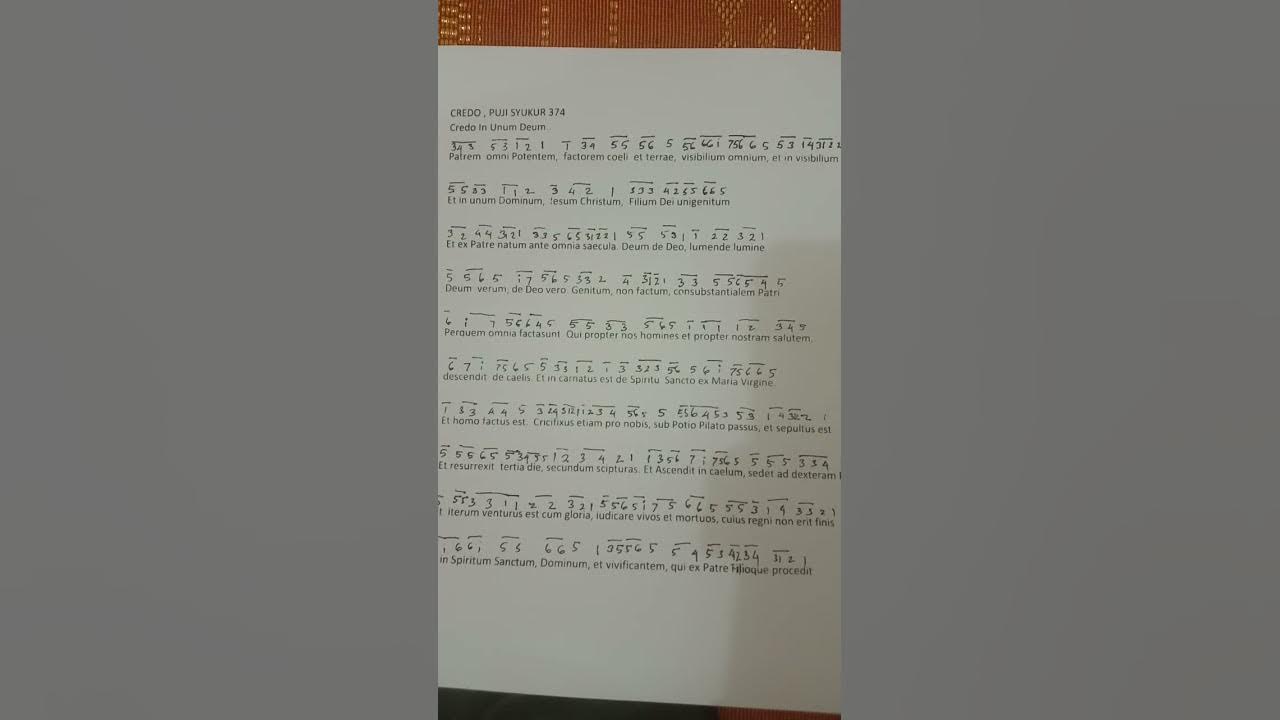 CREDO , PUJI SYUKUR 374
Credo In Unum Deum
343 53 12 1 1 34 55 56 5 56 661 756 6 5 53 143122
Patrem omni Potentem, factorem coeli et terrae, visibilium omnium, et in visibilium
5533 112 3 42 1 333 4255 665
Et in unum Dominum, Iesum Christum, Filium Dei unigenitum
32 44 3121 335 65 31221 55 531 1 22 321
Et ex Patre natum ante omnia saecula. Deum de Deo, lumende lumine.
5 565 i7 565 332 4 3121 33 556545
Deum verum, de Deo vero. Genitum, non factum, consubstantialem Patri
6 i 7 56645 55 33 565 i 11 12 345
Perquem omnia factasunt Qui propter nos homines et propter nostram salutem.
6 7 i 7565 5 3312 1 3 323 56 5 6 i 75665
descendit de caelis. Et in carnatus est de Spiritu Sancto ex Maria Virgine.
1 33 44 5
Et homo factus est. Cricifixus etiam pro nobis, sub Potio Pilato passus, et sepultus est
Et resurrexit tertia die, secundum scipturas. Et Ascendit in caelum, sedet ad dexteram
t iterum venturus est cum gloria, iudicare vivos et mortuos, cuius regni non erit finis
1 661 55 665 135565 5 4 534234 3121
in Spiritum Sanctum, Dominum, et vivificantem, qui ex Patre Filioque procedit